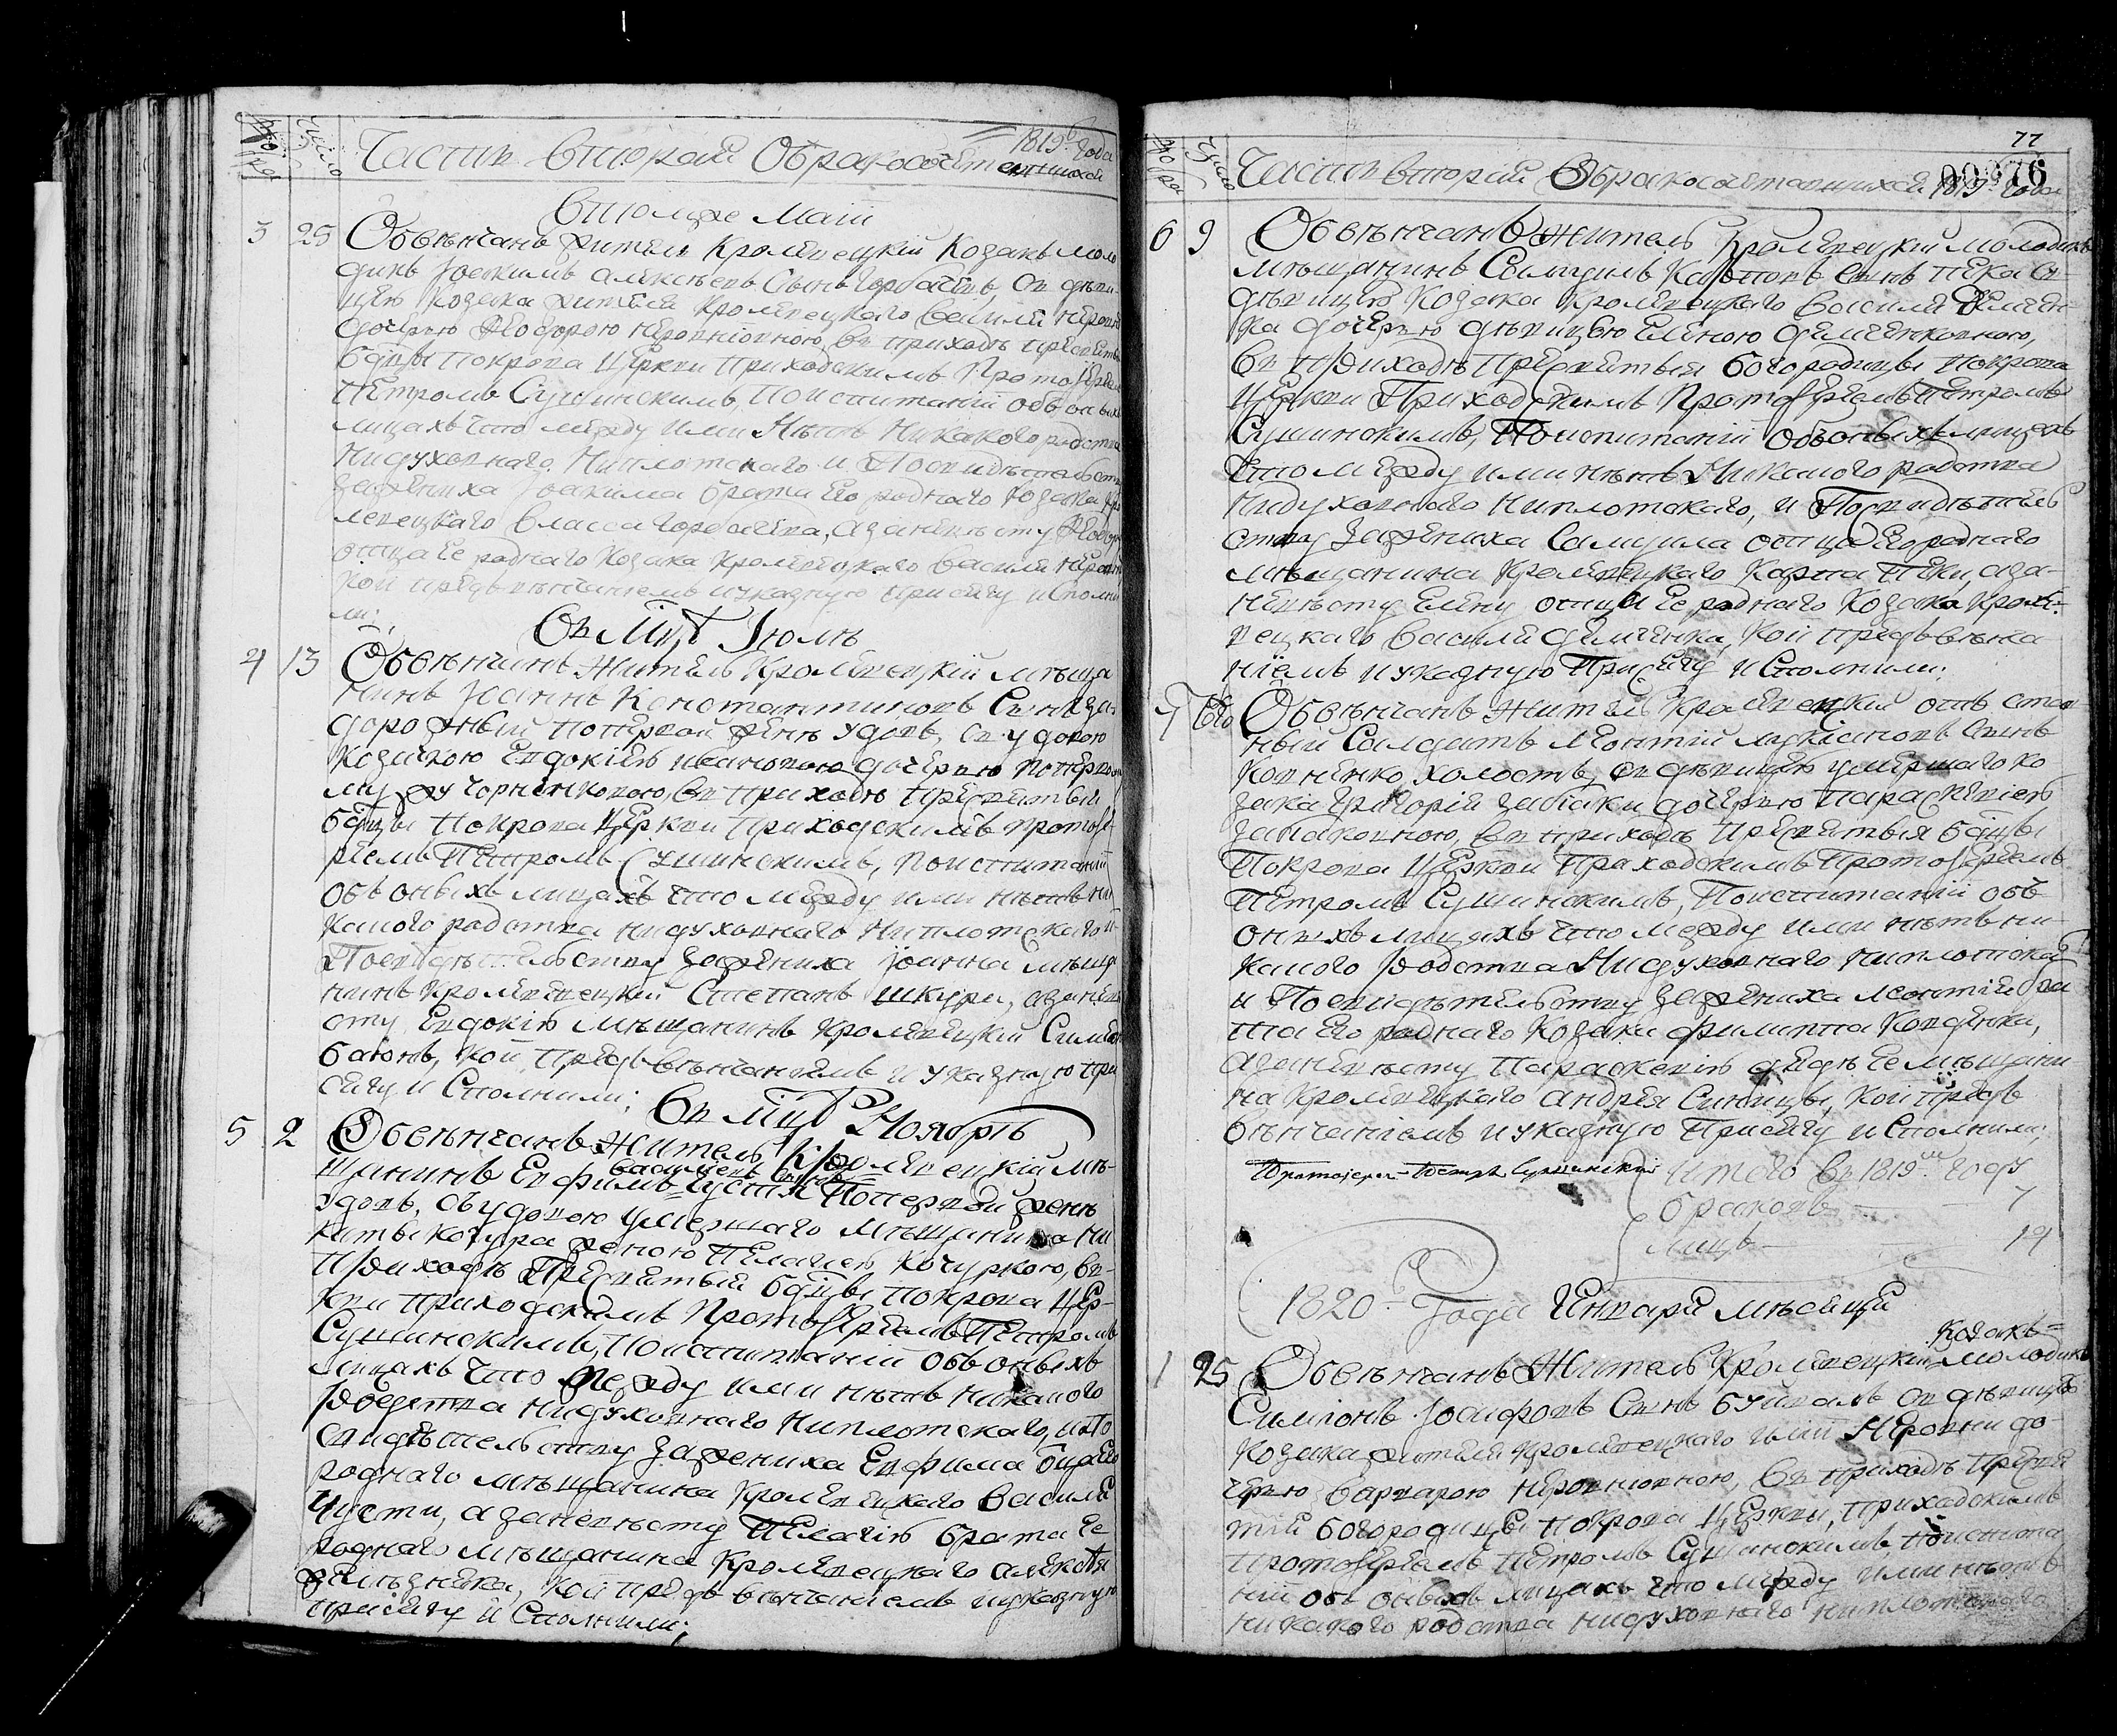 Число
Часть вторая О бракосочетавшихся 1819 года
в месяце Маiи
3 25 Обвѣнчанъ житель Кролевецкiй Козакъ моло
дикъ Iоакимъ Алексѣевъ Сынъ Горбачевъ, съ дѣви
цею Козака жителя Кролевецкаго Василiя
дочерью Ѳеодорою въ приходѣ Пресвятыя
Бдцы Покрова Церкви Приходскимъ Протоiерѣемъ
Петромъ Сушинскимъ, По испитанiи объ оныхъ
лицахъ что между ими Нѣтъ Никакого родства
Нидуховнаго Ниплотскаго и По свидѣтельству
зажениха Iоакима брата Его роднаго Козака Кро
левецкаго Власа Горбачева, а заневѣсту Ѳеодору
отца Ее роднаго Козака Кролевецкаго Василiя
Кои предъ вѣнчанiемъ и указную присягу исполни
ли;
Въ Мцѣ Iюлѣ
4 13 Обвѣнчанъ Житель Кролевецкiй мѣща
нинъ Iоаннъ Константиновъ Сынъ
по первой женѣ удовъ, съ удовою
Козачкою Евдокiею Ивановою дочерью по перво
му мужу Чорненковою, въ приходѣ Пресвятыя
Бдцы Покрова Церкви Приходскимъ Протоiе
рѣемъ Петромъ Сушинскимъ, По испитанiи
объ оныхъ лицахъ что между ими нѣтъ ни
какого родства нидуховнаго Ниплотскаго и
По свидѣтельству зажениха Iоанна мѣща
нинъ Кролевецкiй Степанъ Шкура, а заневѣ
сту Евдокiю Мѣщанинъ Кролевецкiй
Кои Предъ вѣнчанiемъ и указную при
сягу и Сполнили;
Въ Мцѣ Ноябрѣ
5 2 Обвѣнчанъ Житель Кролевецкiй мѣ
щанинъ Евфимъ Васильевъ сынъ Чустя По первой женѣ
удовъ, съ удовою умершаго мѣщанина Ни
киты Кочура женою Пелагiею Кочуркою, въ
Приходѣ Пресвятыя Бдцы Покрова Цер
кви Приходскимъ Протоiерѣемъ Петромъ
Сушинскимъ, По испитанiи объ оныхъ
лицахъ что Между ими нѣтъ никакого
родства нидуховнаго Ниплотскаго, и По
свидѣтельству зажениха Евфима Его
роднаго мѣщанина Кролевецкаго Василiя
Чусти, а заневѣсту Пелагiю брата Ее
роднаго мѣщанина Кролевецкаго Алексѣя
Кои предъ вѣнчанiемъ и указную
присягу и Сполнили;
77
Число
00376
Часть вторая О бракосочетавшихся 1819 года
6 9 Обвѣнчанъ житель Кролевецкiй молодикъ
мѣщанинъ Самуилъ Карповъ Сынъ Пека съ
дѣвицею Козака Кролевецкаго Василiя Демчен
ка дочерью дѣвицею Еленою Демченковною,
въ приходѣ Пресвятыя Богородицы Покрова
Церкви Приходскимъ Протоiерѣемъ Петромъ
Сушинскимъ, По испитанiи объ оныхъ лицахъ
что между ими нѣтъ Никакого родства
Нидуховнаго Ниплотскаго, и По свидѣтель
ству зажениха Самуила отца Его роднаго
мѣщанина Кролевецкаго Карпа Пеки, а за
невѣсту Елену отца Ее роднаго Козака Кроле
вецкаго Василiя Демченка, Кои предъ вѣнча
нiемъ и указную Присягу и Сполнили;
7 Обвѣнчанъ житель Кролевецкiй отъ став
ный Салдатъ Леонтiй Лукiановъ Сынъ
Ковненко, холостъ, съ дѣвицею умершаго Ко
зака Григорiя дочерью Параскевiею
въ приходѣ Пресвятыя Бдцы
Покрова Церкви Приходскимъ Протоiерѣемъ
Петромъ Сушинскимъ, По испитанiи объ
оныхъ лицахъ что между ими нѣтъ ни
какого родства Нидуховнаго Ниплотска
и По свидѣтельству зажениха Леонтiя бра
та Его роднаго Козака Филиппа Ковненка,
а заневѣсту Параскевiю дядя Ее мѣщани
на Кролевецкаго Андрея Синицы, Кои предъ
вѣнчанiемъ и указную Присягу и Сполнили;
Протоiерей Петръ Сушинскiй
Итого въ 1819м году
браковъ 7
лицъ 14
1820 Года Генваря мѣсяца
Козакъ
1 25 Обвѣнчанъ Житель Кролевецкiй молодикъ
Симеонъ Iосифовъ Сынъ съ дѣвицею
Козака жителя Кролевецкаго до
черью Варварою въ приходѣ Пресвя
тыя Богородицы Покрова Церкви, приходскимъ
Протоiерѣемъ Петромъ Сушинскимъ, По испита
нiи объ оныхъ лицахъ что между ими нѣтъ
никакого родства нидуховнаго ниплотскаго